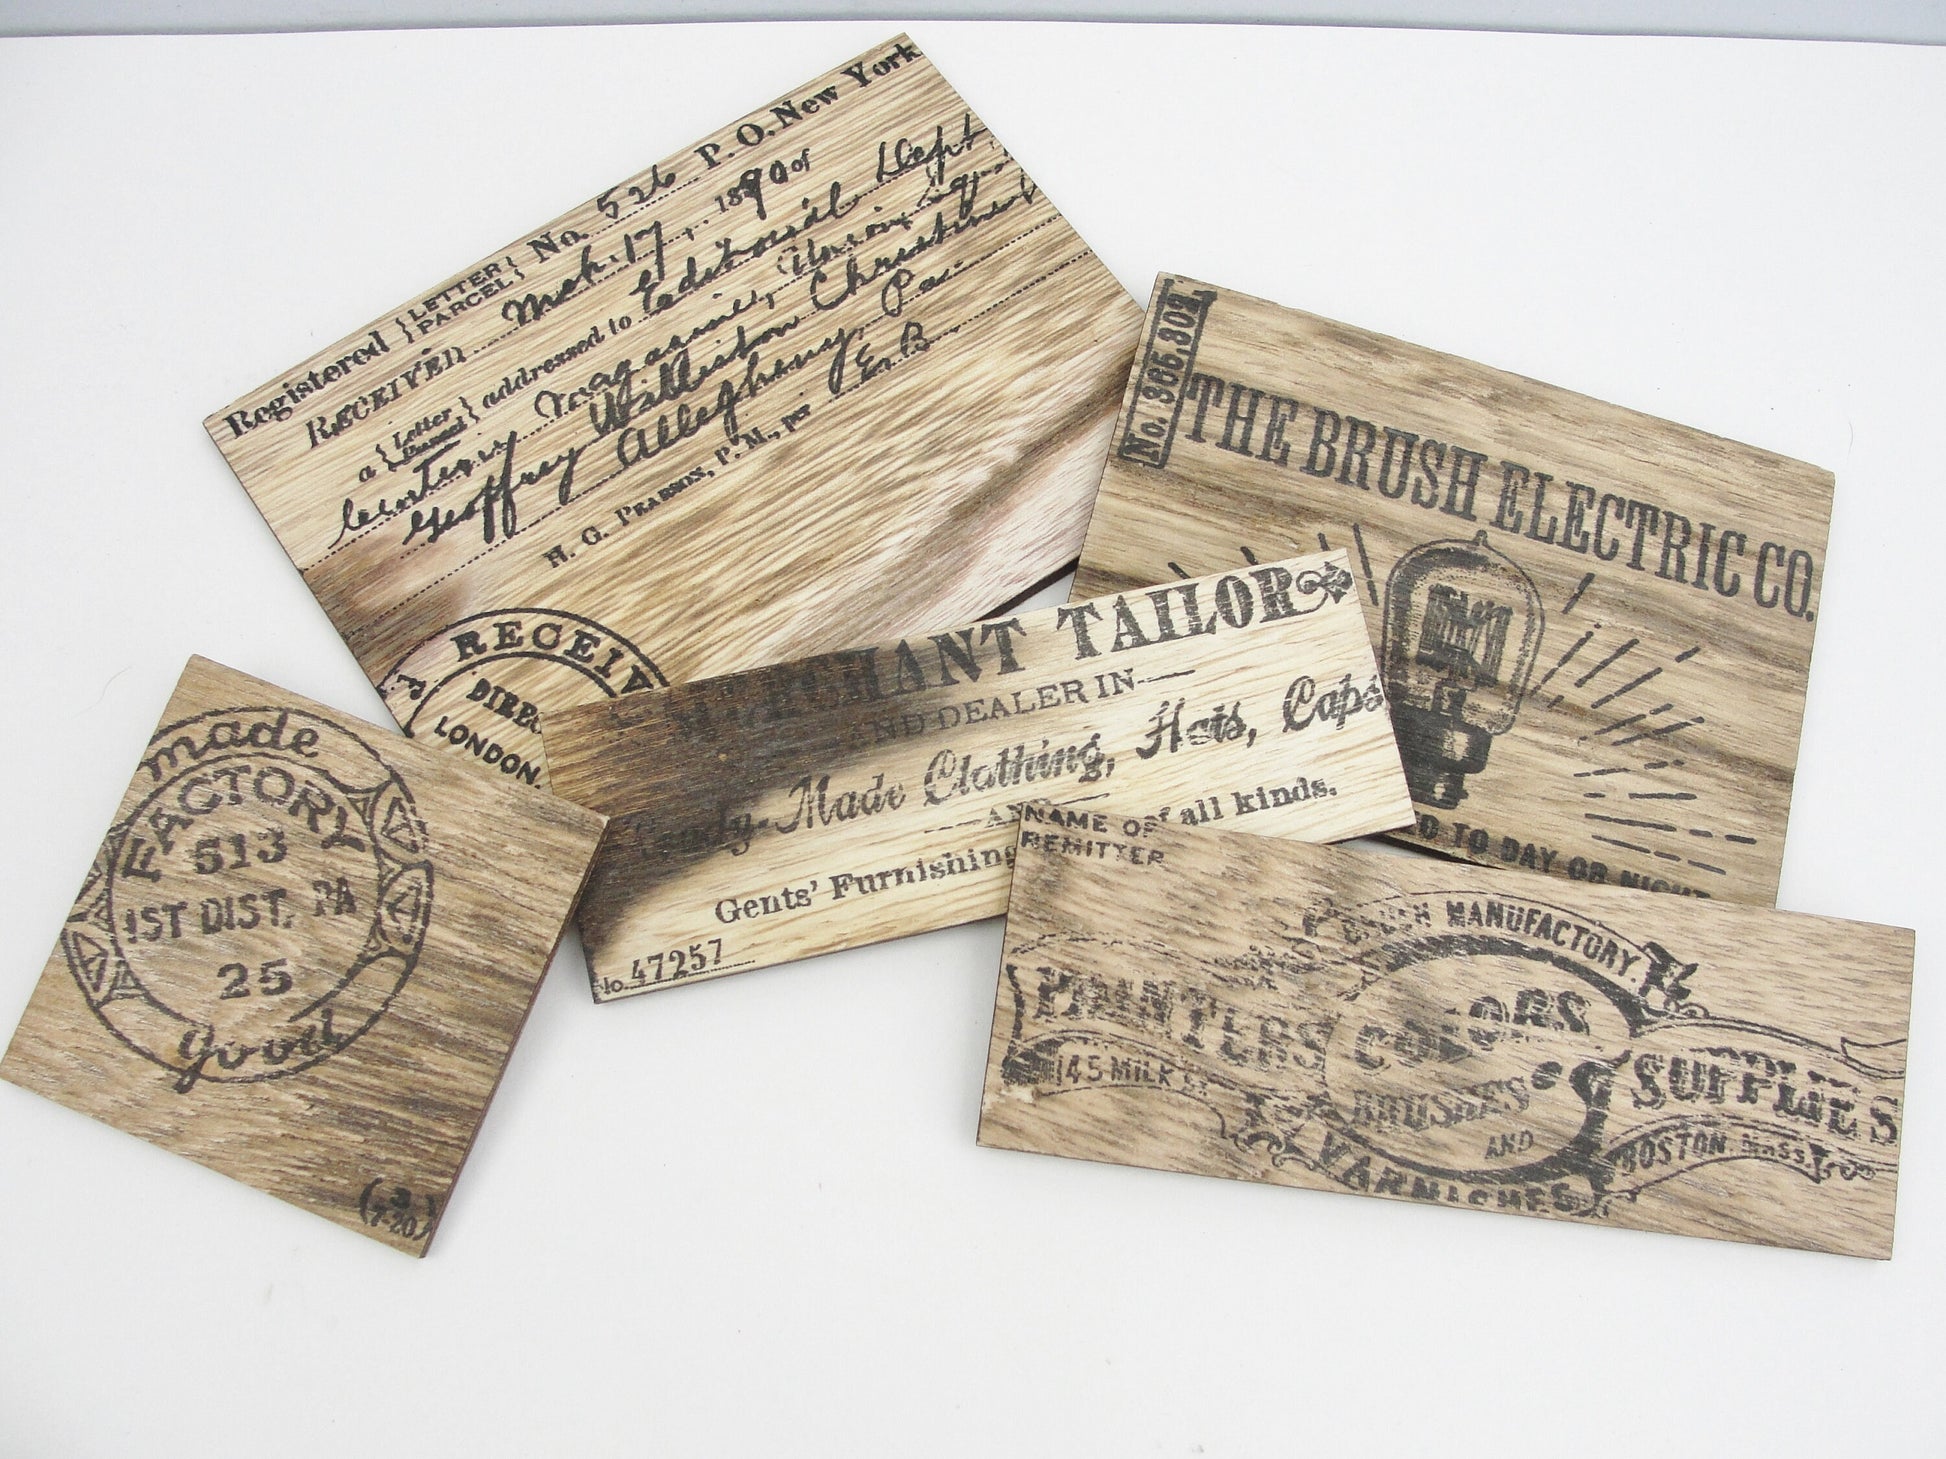 Registered {LETTER PARCEL} No. 526 P. O. New York
RECEIVED Mch. 17, 1890 of
a {Letter Parcel} addressed to Editorial Dept
Magazine, Union Sig
Geoffrey Williston Christine
Allegheny, Pa
H. G. PEARSON, P. M., per E. B
RECEIV
DIREC
LONDON.
No. 365,802
THE BRUSH ELECTRIC CO.
ED TO DAY OR NIGHT
MERCHANT TAILOR
AND DEALER IN
Ready-Made Clothing, Hats, Caps
AN
Gents' Furnishing of all kinds.
No. 47257
made
FACTORY
513
1ST DIST. PA
25
good
(3
7-20)
NAME OF
REMITTER
BRUSH MANUFACTORY.
PAINTERS COLORS
145 MILK ST.
BRUSHES
SUPPLIES
AND
BOSTON, MASS.
VARNISHES